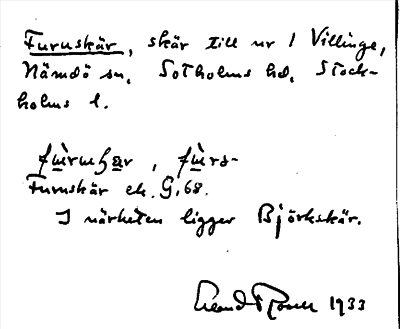 Furuskär, skär till nr 1 Villinge,
Nämdö sn, Sotholms hd, Stock-
holms l.
Furuskär ek. G, 68.
I närheten ligger Björkskär.
1933